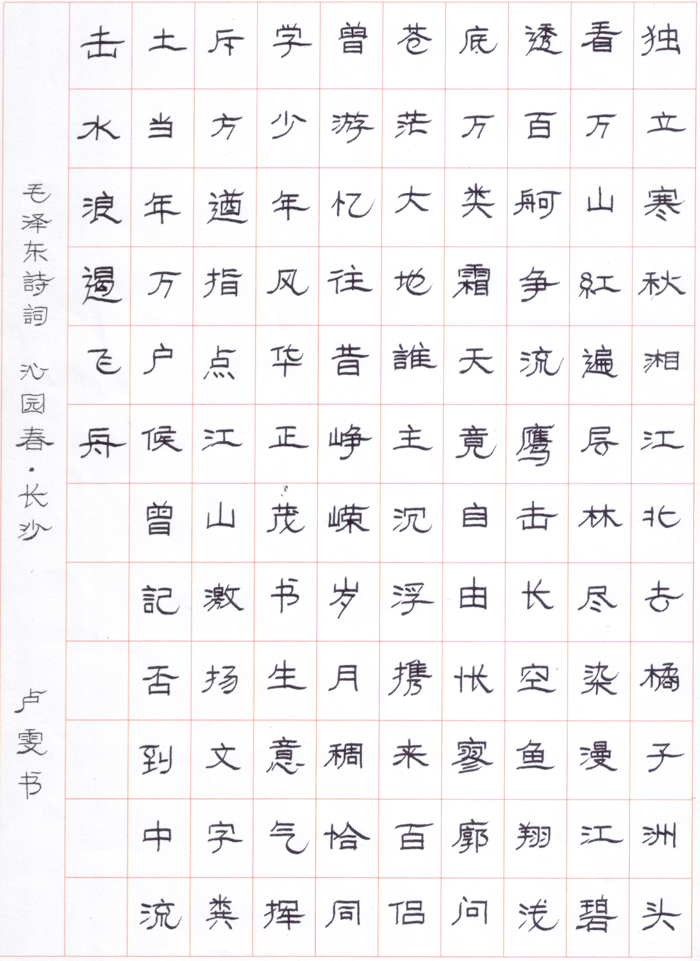 独立寒秋湘江北去橘子洲头
看万山紅遍层林尽染漫江碧
透百舸争流鹰击长空鱼翔浅
底万类霜天竟自由怅寥廓问
苍茫大地誰主沉浮携来百侣
曾游忆往昔峥嵘岁月稠恰同
学少年风华正茂书生意气挥
斥方遒指点江山激扬文字粪
土当年万户候曾記否到中流
击水浪遏飞舟
毛泽东詩詞 沁园春·长沙 卢雯书